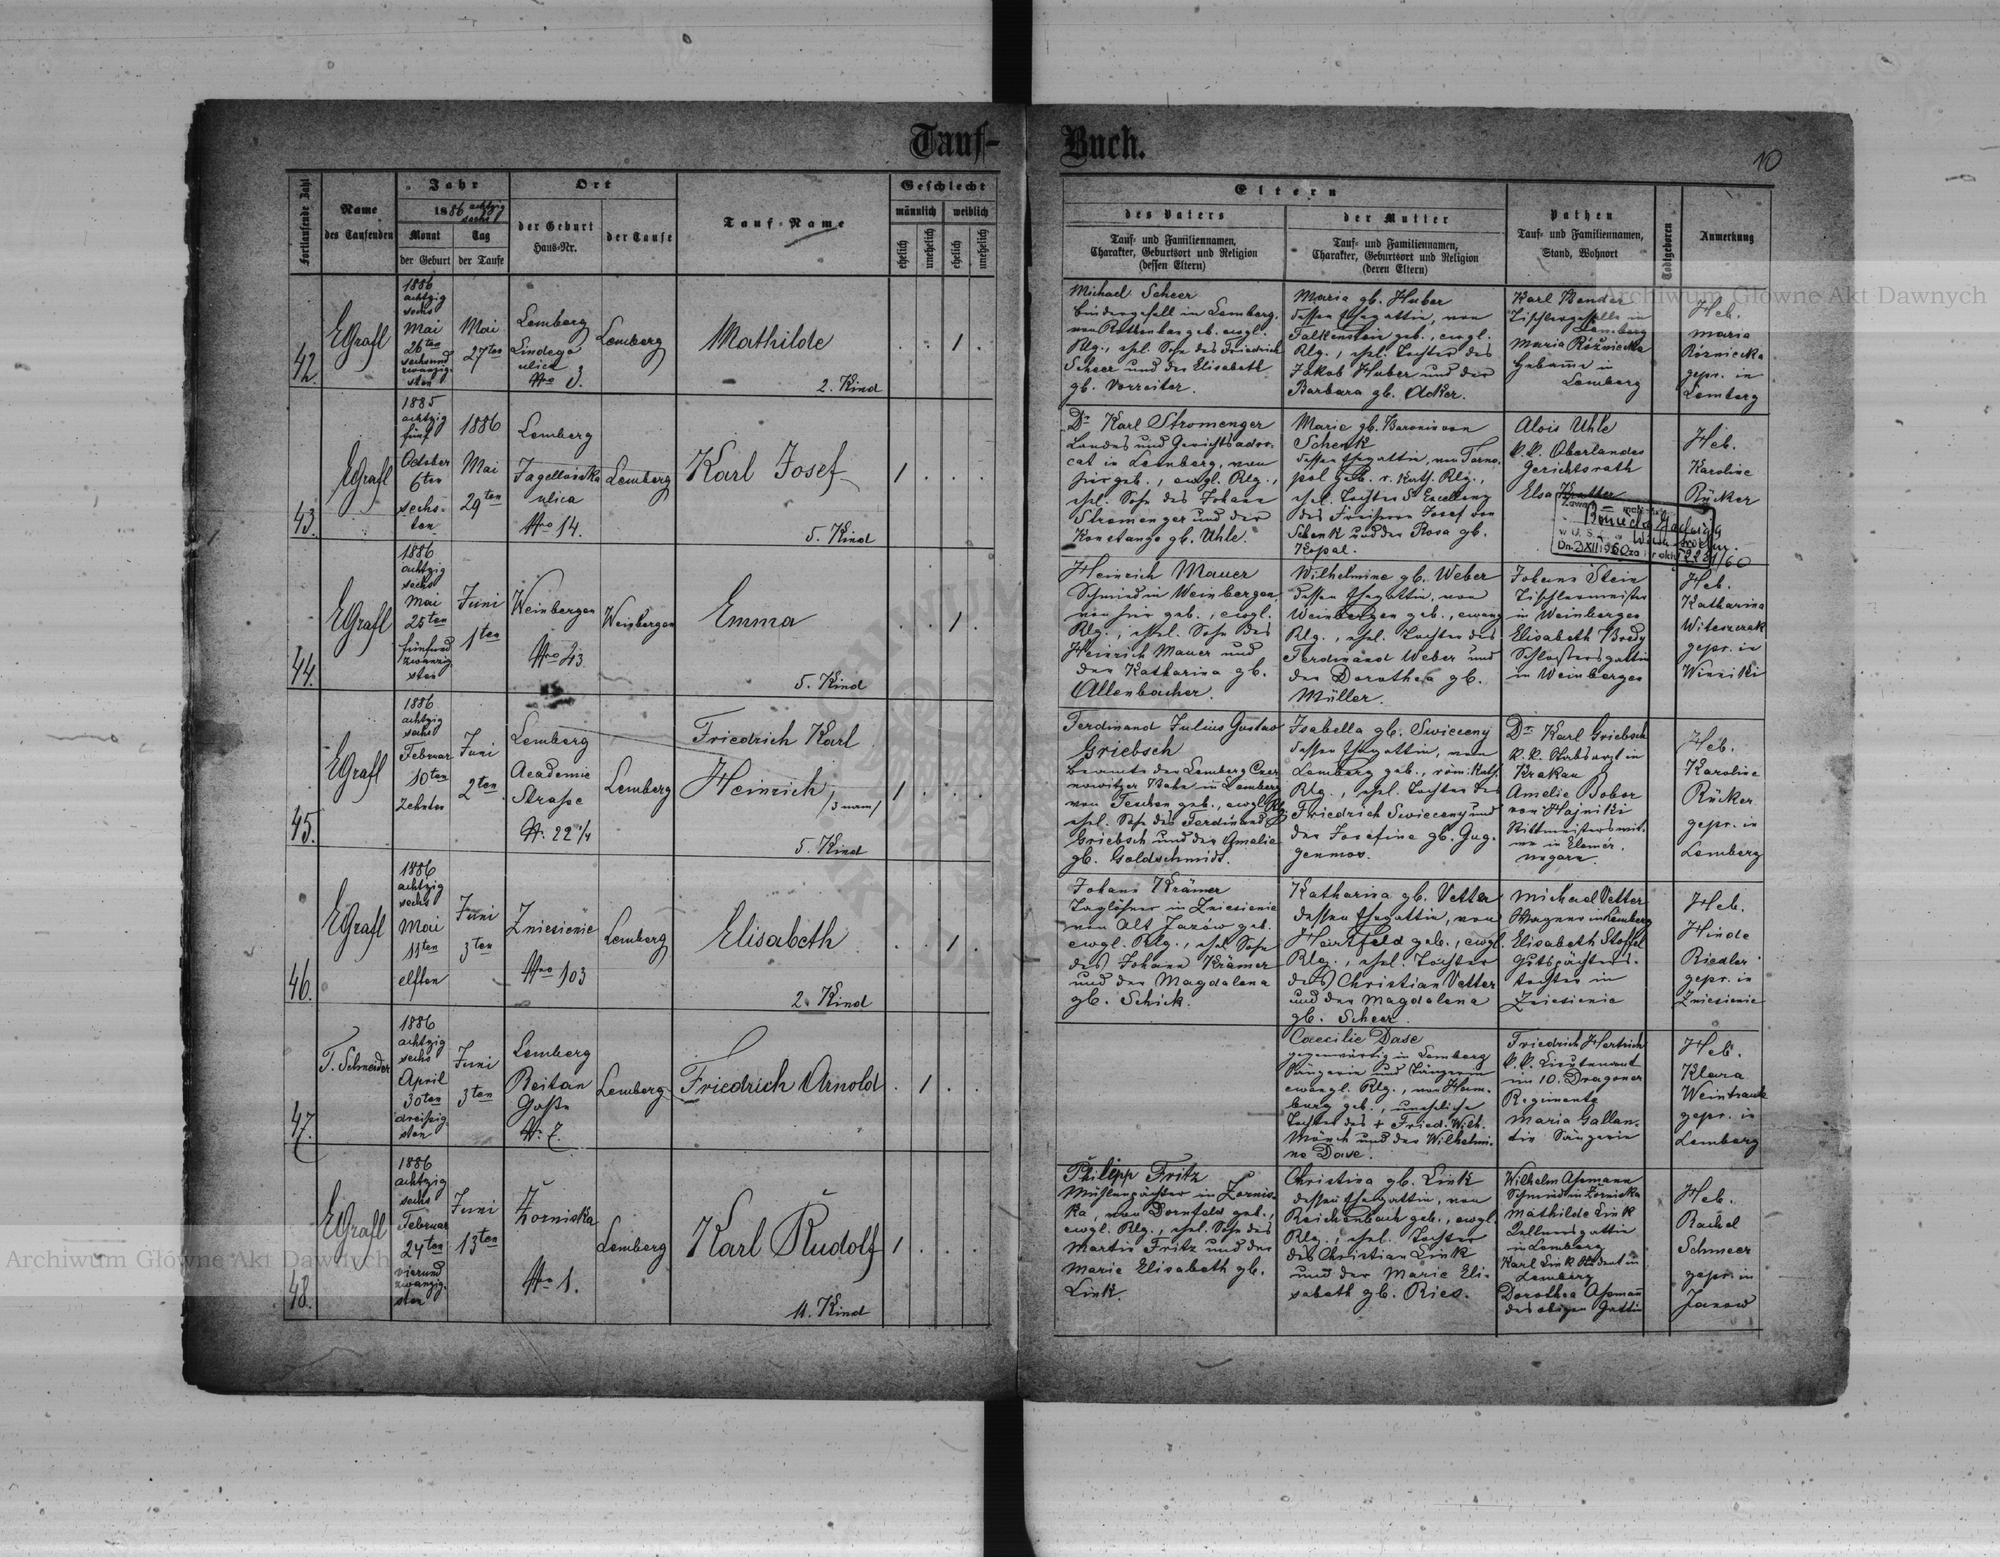 Tauf-
Buch.
10
Fortlaufende Zahl
Name
des Taufenden
Jahr
1886 achtzig
sechs
Monat
der Geburt
Tag
der Taufe
Ort
der Geburt
Haus-Nr.
der Taufe
Tauf-Name
Geschlecht
männlich
weiblich
ehelich
unehelich
ehelich
unehelich
Eltern
des Vaters
Tauf- und Familiennamen,
Charakter, Geburtsort und Religion
(dessen Eltern)
der Mutter
Tauf- und Familiennamen,
Charakter, Geburtsort und Religion
(deren Eltern)
Pathen
Tauf- und Familiennamen,
Stand, Wohnort
Todtgeboren
Anmerkung
42.
EGrafl
1886
achtzig
sechs
Mai
26ten
sechsund
zwanzig-
sten
Mai
27ten
Lemberg
ulica
Nro 3.
Lemberg
Mathilde
2. Kind
1
Michael Scheer
Bindergesell in Lemberg,
geb. evgl.
Rlg., ehel. Sohn des Friedrich
Scheer und der Elisabeth
gb. Vorreiter.
Maria gb. Huber
dessen Ehegattin, von
Falkenstein geb., evgl.
Rlg., ehel. Tochter des
Jakob Huber und der
Barbara gb. Acker.
Karl Bender
Tischlergeselle in
Lemberg
Maria Rozniecka
Hebame in
Lemberg
Heb.
Maria
Rozniecka
gepr. in
Lemberg
43.
EGrafl
1885
achtzig
fünf
October
6ten
sechs-
ten
1886
Mai
29ten
Lemberg
Jagellonska
ulica
Nro 14.
Lemberg
Karl Josef
5. Kind
1
Dr Karl Stromenger
Landes und Gerichtsadvo-
cat in Lemberg, von
hier geb., evgl. Rlg.,
ehel. Sohn des Johann
Stromenger und der
Konstanze gb. Uhle.
Marie gb. Baronin von
Schenk
dessen Ehegattin, von Tarno-
pol geb. r. kath. Rlg.,
ehel. Tochter Sr Excellenz
des Freiherrn Josef von
Schenk und der Rosa gb.
Kopal.
Alois Uhle
k.k. Oberlandes
Gerichtsrath
Elsa
Heb.
Karoline
Rücker
44.
EGrafl
1886
achtzig
sechs
Mai
25ten
fünfund
zwanzig-
sten
Juni
1ten
Weinbergen
Nro 43.
Weinbergen
Emma
5. Kind
1
Heinrich Mauer
Schmied in Weinbergen,
von hier geb., evgl.
Rlg., ehel. Sohn des
Heinrich Mauer und
der Katharina gb.
Allenbacher.
Wilhelmine gb. Weber
dessen Ehegattin, von
Weinbergen geb., evang
Rlg., ehel. Tochter des
Ferdinand Weber und
der Dorothea gb.
Müller.
Johann Stein
Tischlermeister
in Weinbergen
Elisabeth Bredy
Schlossersgattin
in Weinbergen
Heb.
Katharina
Witeszczak
gepr. in
Winniki
45.
EGrafl
1886
achtzig
sechs
Februar
10ten
zehnten
Juni
2ten
Lemberg
Academie
Straße
Nr. 22 1/4
Lemberg
Friedrich Karl
Heinrich /3 nam/
5. Kind
1
Ferdinand Julius Gustav
Griebsch
Beamte der Lemberg Czer-
nowitzer Bahn in Lemberg
von Teschen geb., evgl. Rlg.
ehel. Sohn des Ferdinand
Griebsch und der Amalie
gb. Goldschmidt.
Isabella gb. Swieceny
dessen Ehegattin, von
Lemberg geb., röm. kath.
Rlg., ehel. Tochter des
Friedrich Swieceny und
der Josefine gb. Gug-
genmos.
Dr Karl Griebsch
k.k. Stabsarzt in
Krakau
Amelie Bobor
von Hajniki
Rittmeisterswit-
we in
Heb.
Karoline
Rücker
gepr. in
Lemberg
46.
EGrafl
1886
achtzig
sechs
Mai
11ten
elften
Juni
3ten
Zniesienie
Nro 103
Lemberg
Elisabeth
2. Kind
1
Johann Krämer
Taglöhner in Zniesienie
von Alt Jazow geb.
evgl. Rlg., ehel. Sohn
des Johann Krämer
und der Magdalena
gb. Schick.
Katharina gb. Vetter
dessen Ehegattin, von
Hartfeld geb., evgl.
Rlg., ehel. Tochter
des Christian Vetter
und der Magdalena
gb. Scheer.
Michael Vetter
Wagner in Lemberg
Elisabeth Stoffel
Gutspächters-
tochter in
Zniesienie
Heb.
Hinde
Riedler
gepr. in
Zniesienie
47.
T. Schneider
1886
achtzig
sechs
April
30ten
dreißig-
sten
Juni
3ten
Lemberg
Reitan
Gaße
Nr. 7.
Lemberg
Friedrich Arnold
1
Caecilie Dase
gegenwärtig in Lemberg
Sängerin
evangl. Rlg., von Ham-
burg geb., uneheliche
Tochter des + Fried. Wilh.
Mönch und der Wilhelmi-
ne Dave.
Friedrich Hertrich
k.k. Lieutenant
im 10. Dragoner
Regimente
Maria Gallan-
tin Sängerin
Heb.
Klara
Weintraub
gepr. in
Lemberg
48.
EGrafl
1886
achtzig
sechs
Februar
24ten
vierund
zwanzig-
sten
Juni
13ten
Zorniska
Nro 1.
Lemberg
Karl Rudolf
11. Kind
1
Philipp Fritz
Mühlenpächter in Zornis-
ka, von Dornfeld geb.,
evgl. Rlg., ehel. Sohn des
Martin Fritz und der
Marie Elisabeth gb.
Link.
Christina gb. Link
dessen Ehegattin, von
Reichenbach geb., evgl.
Rlg., ehel. Tochter
des Christian Link
und der Marie Eli-
sabeth gb. Ries.
Wilhelm Assmann
Schmied in Zorniska
Mathilde Link
in Lemberg
Karl Link Student in
Lemberg
Dorothea Assmann
des obigen Gattin
Heb.
Rachel
Schmeer
gepr. in
Janow
Archiwum Główne Akt Dawnych
Archiwum Główne Akt Dawnych